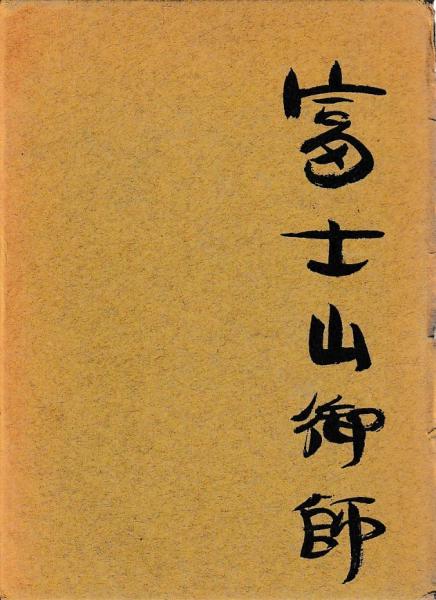 富士山御師